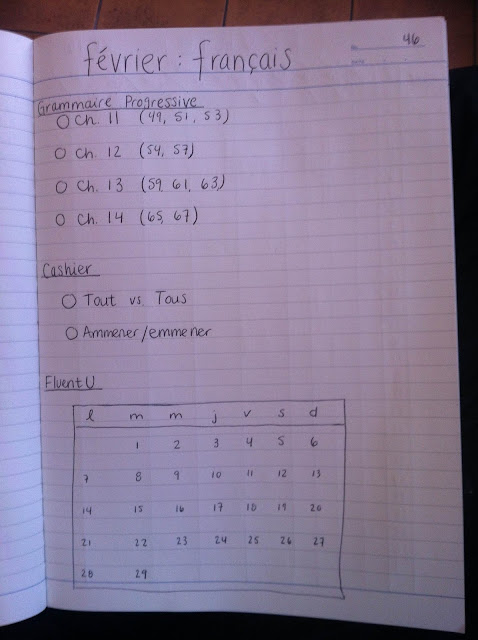 46
février : français
Grammaire Progressive
Ch. 11 (49, 51, 53)
Ch. 12 (54, 57)
Ch. 13 (59, 61, 63)
Ch. 14 (65, 67)
Cashier
Tout vs. Tous
Ammener/emmener
FluentU
l m m j v s d
1 2 3 4 5 6
7 8 9 10 11 12 13
14 15 16 17 18 19 20
21 22 23 24 25 26 27
28 29